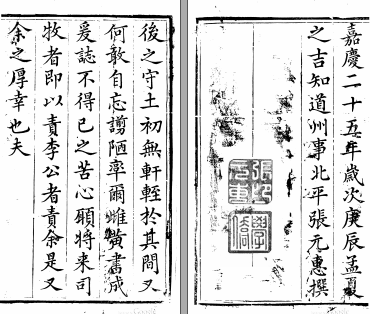 後之守土初無軒輊於其間又
何敢自忘譾陋率爾雌黃書成
爰誌不得已之苦心願將来司
牧者即以責李公者責余是又
余之厚幸也夫
嘉慶二十五年歲次庚辰孟夏
之吉知道州事北平張元惠撰
張印元惠